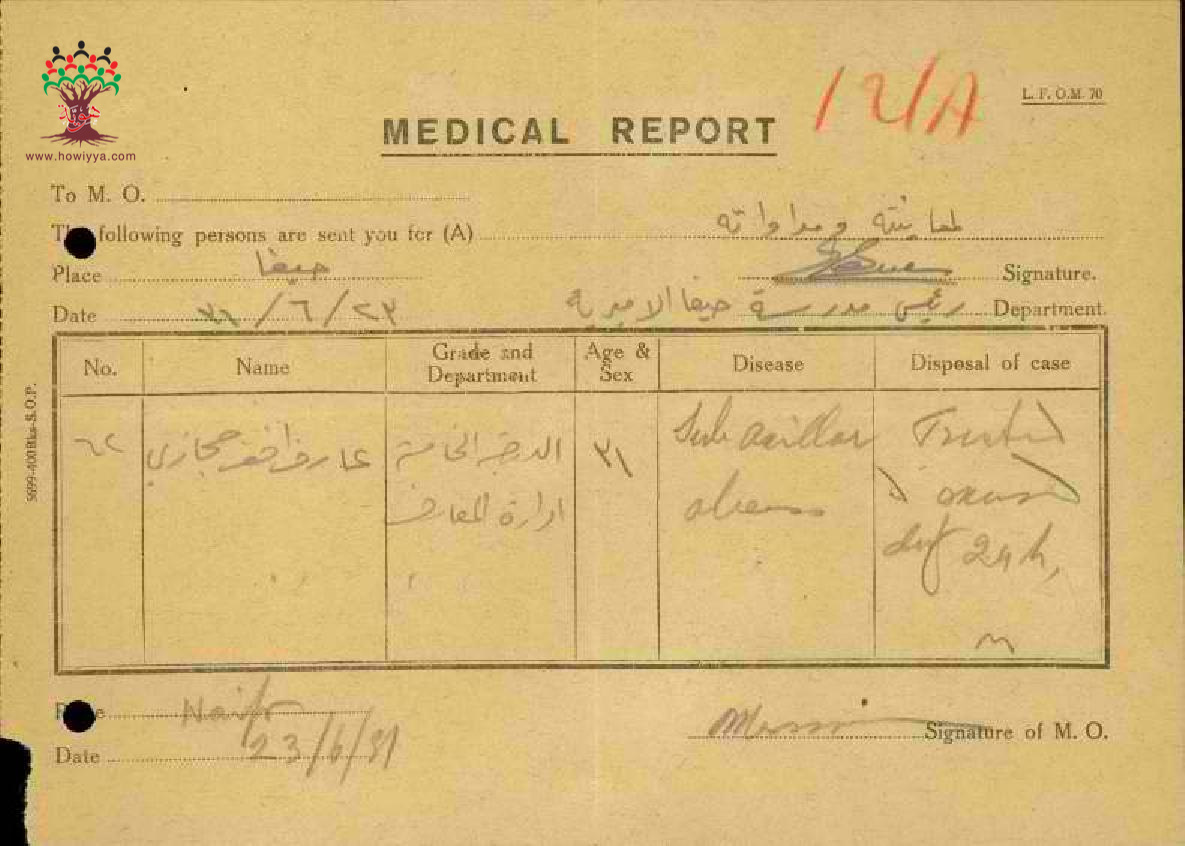 www.howiyya.com
12/A
L. F. O.M. 70
MEDICAL REPORT
To M. O.
The following persons are sent you for (A) لمعاينته ومداواته
Place حيفا Signature.
Date ٢٣/٦/٣١ رئيس مدرسة حيفا الاميرية Department.
No. Name Grade and Department Age & Sex Disease Disposal of case
عارف حجازي الدرجة الخامسة ٣١ Sub axillar Treated
ادارة المعارف abcess
duty 24 h,
5699-400 Bks-S.O.P.
Place Haifa
Signature of M. O.
Date 23/6/31